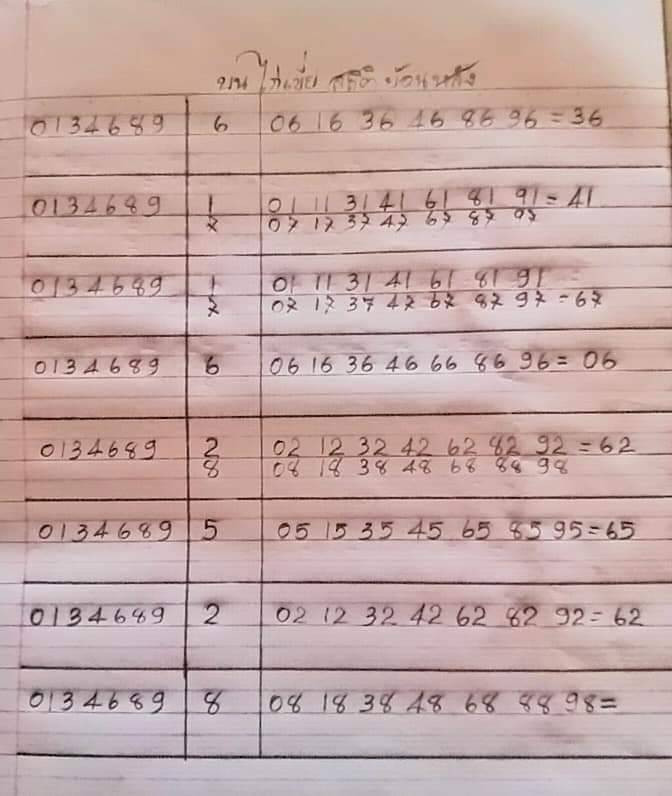 บน ไก่เขี่ย สถิติ ย้อนหลัง
0134689 6 06 16 36 46 86 96 = 36
0134689 1 01 11 31 41 61 81 91 = 41
7 07 17 37 47 67 87 97
0134689 1 01 11 31 41 61 81 91
7 07 17 37 47 67 87 97 = 67
0134689 6 06 16 36 46 66 86 96 = 06
0134689 2 02 12 32 42 62 82 92 = 62
8 08 18 38 48 68 88 98
0134689 5 05 15 35 45 65 85 95 = 65
0134689 2 02 12 32 42 62 82 92 = 62
0134689 8 08 18 38 48 68 88 98 =